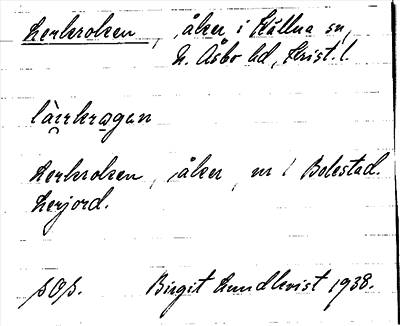 Lerkroken, åker i Källna sn,
N. Åsbo hd, Krist. l.
lärrkrogan
Lerkroken, åker, nr 1 Bolestad.
Lerjord.
sOs. Birgit Lundkvist 1938.